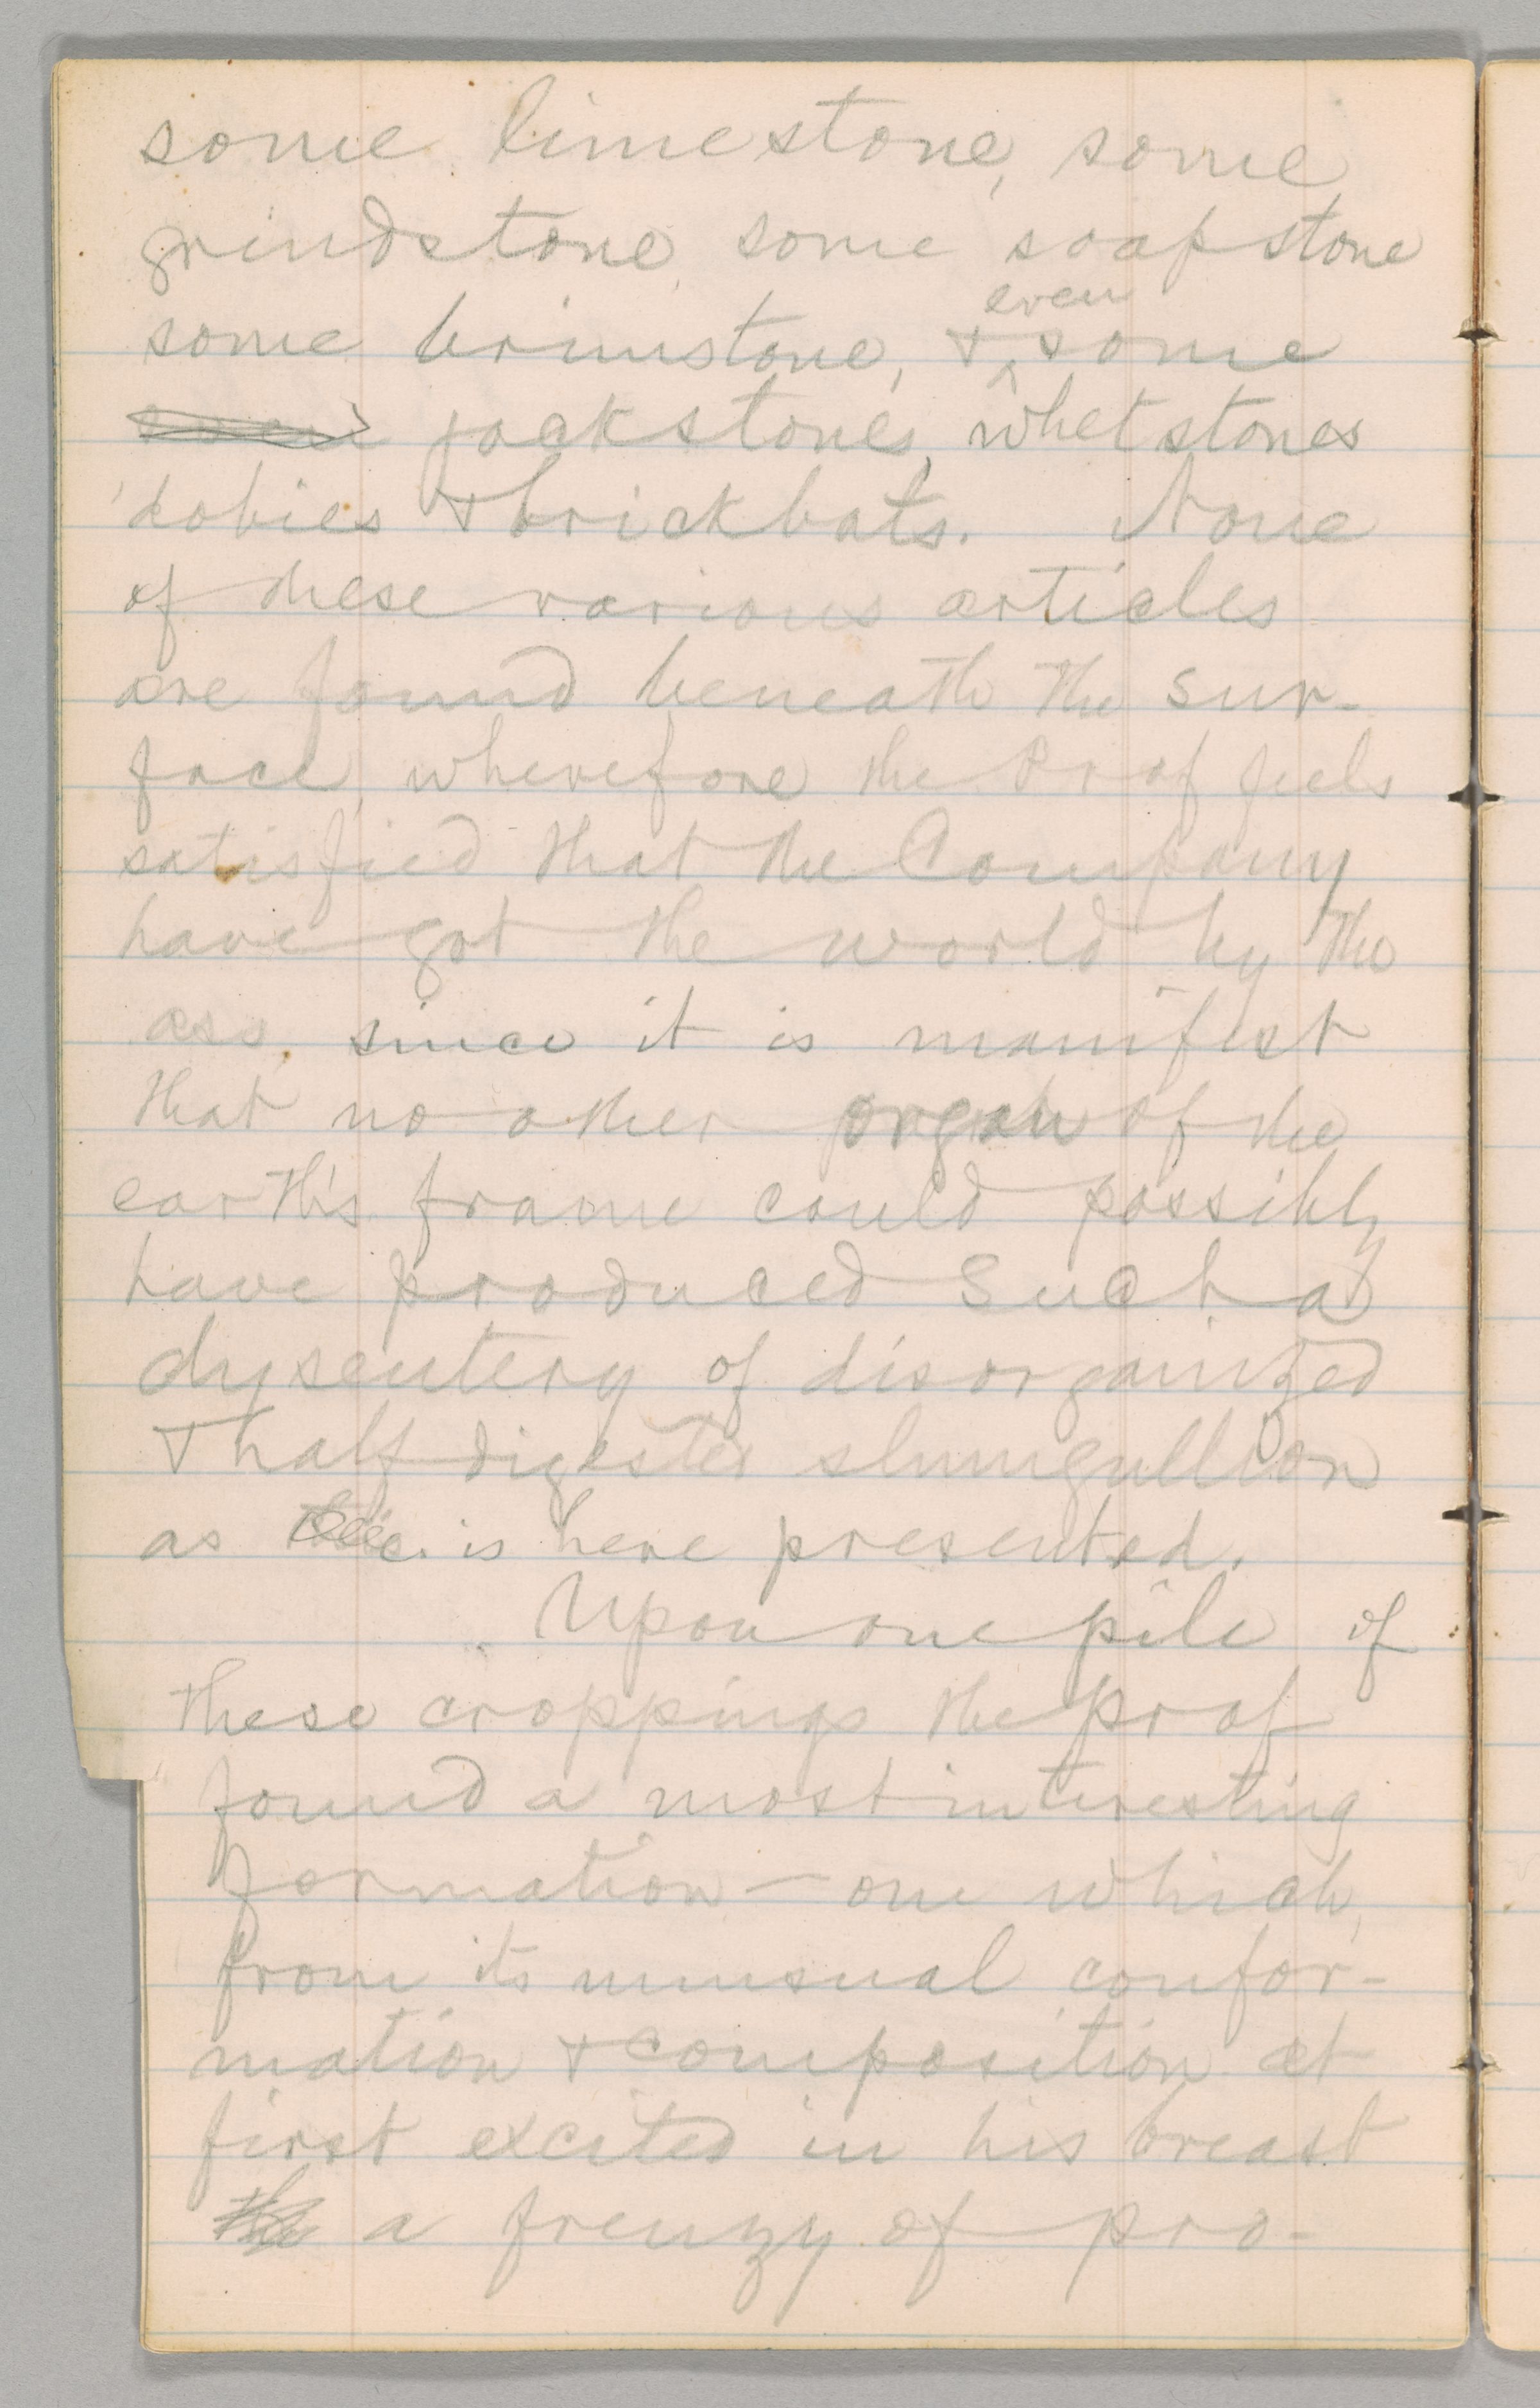 some limestone, some
grindstone, some soapstone
some brimstone, & even some
jackstones, whetstones
'dobies & brickbats. None
of these various articles
are found beneath the sur-
face, wherefore the Prof feels
satisfied that the Company
have got the world by the
ass, since it is manifest
that no other organ of the
earth's frame could possibly
have produced such a
dysentery of disorganized
& half-digested slumgullion
as is here presented.
Upon one pile of
these croppings the Prof
found a most interesting
formation—one which,
from its unusual confor-
mation & composition at
first excited in his breast
a frenzy of pro-